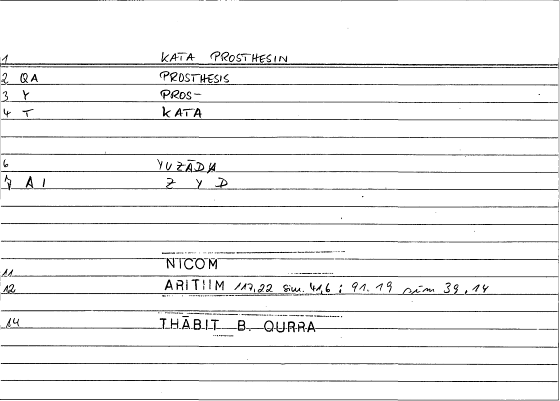 1 KATA PROSTHESIN
2 QA PROSTHESIS
3 Y PROS-
4 T KATA
6 YUZĀDA
7 A I Z Y D
11 NICOM
12 ARITIIM 117,22 sim. 41,6 ; 91.19 sim 39,14
14 THĀBIT B. QURRA